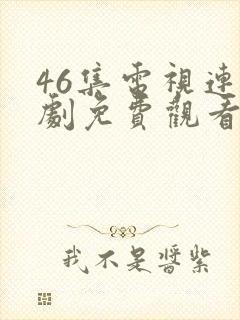 46集電視連
劇免費觀看
我不是醬紫